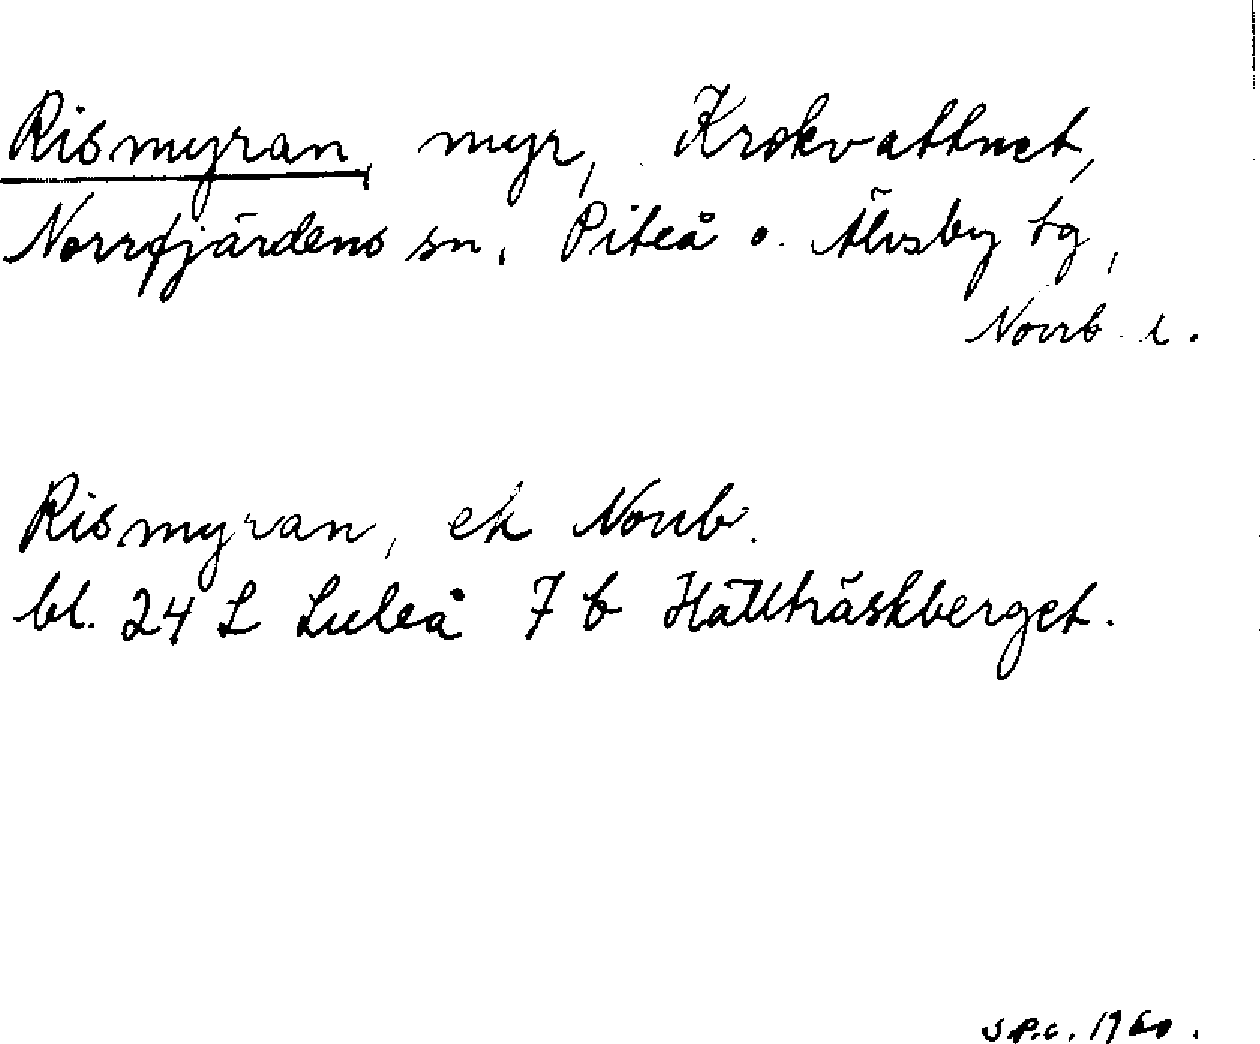 Rismyran, myr, Krokvattnet,
Norrfjärdens sn, Piteå o. Älvsby tg,
Norrb. l.
Rismyran, ek Norrb.
bl. 24 L Luleå 7 b Hällträskberget.
S.P.C. 1960.